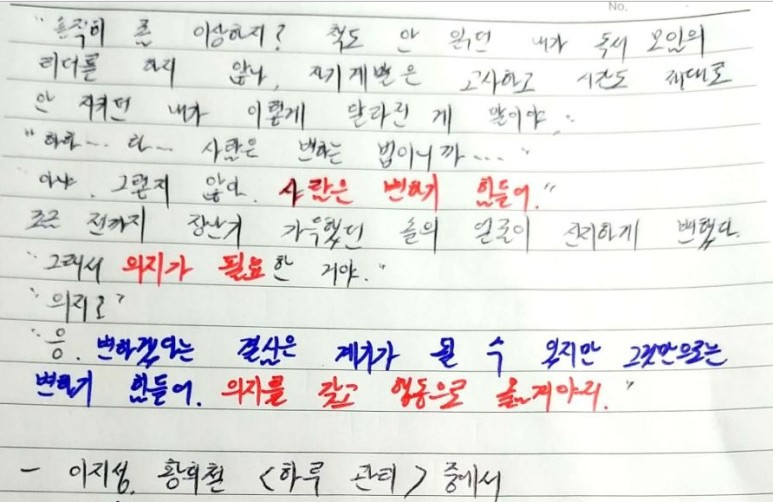 No.
"솔직히 좀 이상하지? 책도 안 읽던 내가 독서 모임의
리더를 하지 않나, 자기계발은 고사하고 시간도 제대로
안 지키던 내가 이렇게 달라진 게 말이야."
"하하... 다... 사람은 변하는 법이니까..."
"아냐. 그렇지 않아. 사람은 변하기 힘들어."
조금 전까지 장난기 가득했던 솔의 얼굴이 진지하게 변했다.
"그래서 의지가 필요한 거야."
"의지로?"
"응. 변하겠다는 결심은 계기가 될 수 있지만 그것만으로는
변하기 힘들어. 의지를 갖고 행동으로 옮겨야지."
- 이지성, 황희철 <하루 관리> 중에서